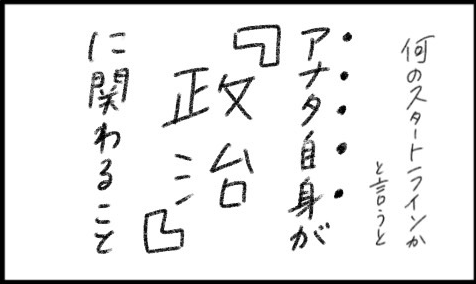 何のスタートラインか
と言うと
アナタ自身が
『政治』
に関わること